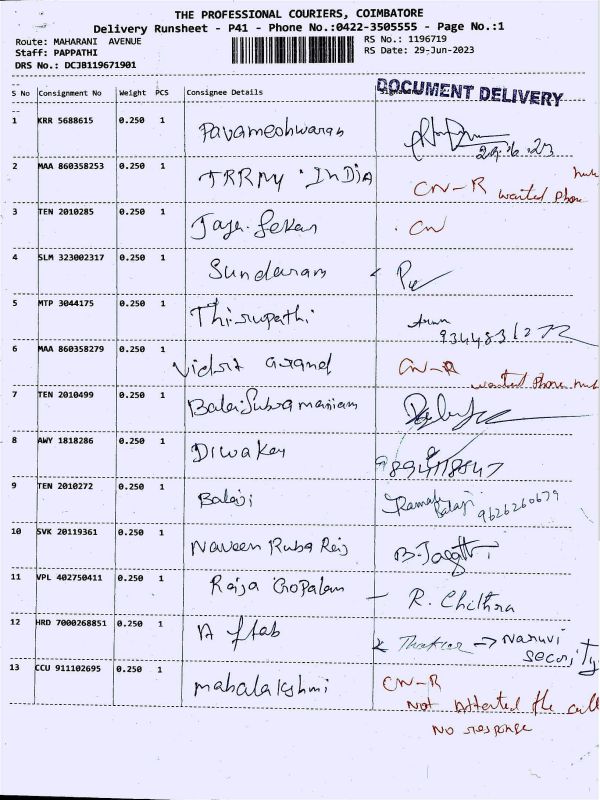 THE PROFESSIONAL COURIERS, COIMBATORE
Delivery Runsheet - P41 - Phone No.:0422-3505555 - Page No.:1
Route: MAHARANI AVENUE
RS No.: 1196719
Staff: PAPPATHI
RS Date: 29-Jun-2023
DRS No.: DCJB119671901
DOCUMENT DELIVERY
S No Consignment No Weight PCS Consignee Details
1 KRR 5688615 0.250 1 Pavameshwaran
29.6.23
2 MAA 860358253 0.250 1 TRRMY INDIA CN-R wanted phone
3 TEN 2010285 0.250 1 Jaya.Sekar CN
4 SLM 323002317 0.250 1 Sundaram
5 MTP 3044175 0.250 1 Thirupathi
6 MAA 860358279 0.250 1 CN-R
wanted phone
7 TEN 2010499 0.250 1 BalaiSubramaniam
8 AWY 1818286 0.250 1 Diwaker
9 TEN 2010272 0.250 1 Balaji Balaji 9626260679
10 SVK 20119361 0.250 1 Naveen Ruba Raj
11 VPL 402750411 0.250 1 Raja Gopalam - R. Chithra
12 HRD 7000268851 0.250 1 Aftab → Naruvi
security
13 CCU 911102695 0.250 1 mahalakshmi CN-R
Not Attented the call
No response